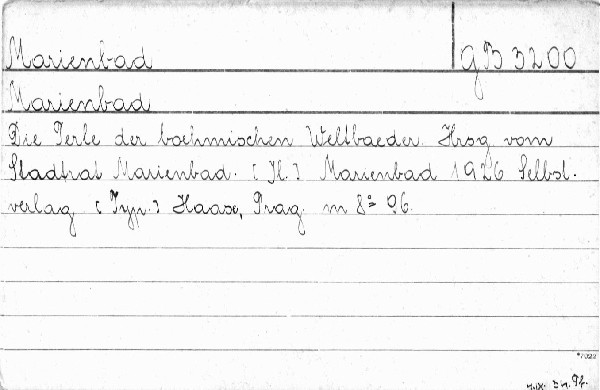 Marienbad
GB 3200
Marienbad
Die Perle der boehmischen Weltbaeder. Hrsg vom
Stadtrat Marienbad. [Il.] Marienbad 1926 Selbst-
verlag [Typ.] Haase, Prag. m 8°
*7022